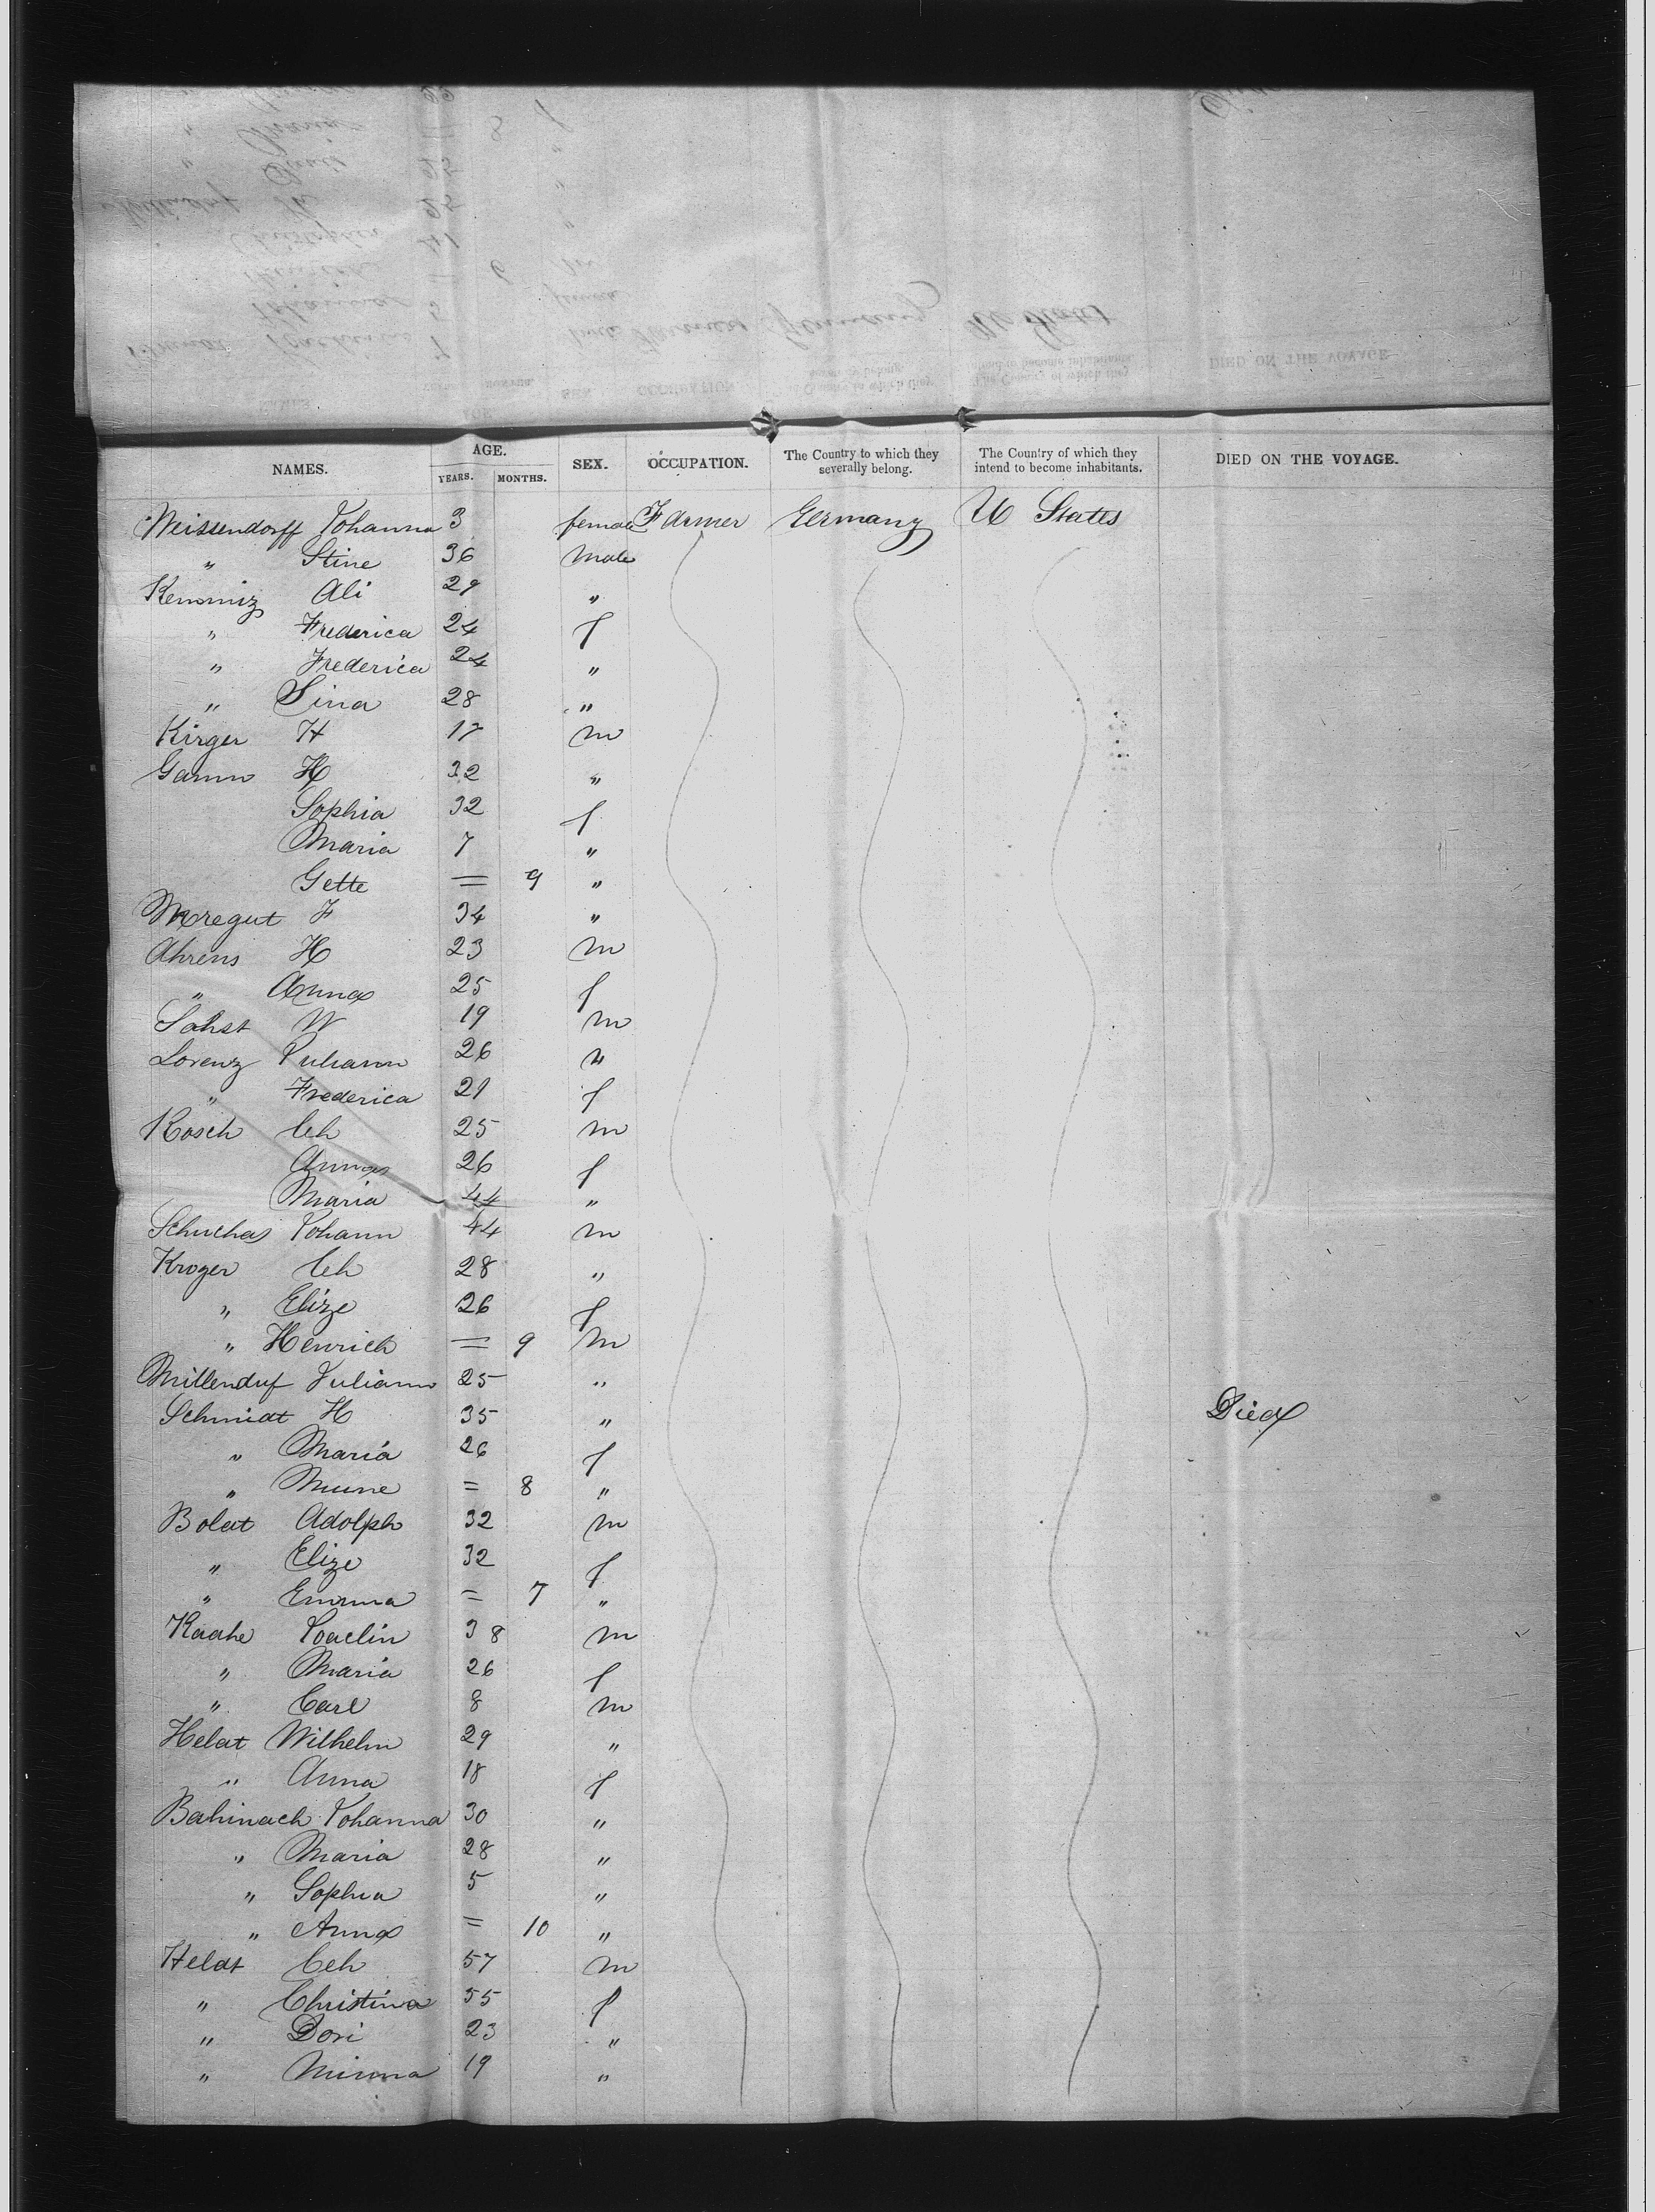 NAMES. AGE. YEARS. MONTHS. SEX. OCCUPATION. The Country to which they severally belong. The Country of which they intend to become inhabitants. DIED ON THE VOYAGE.
Weissendorff Johanna 3 female Farmer Germany U States
" Stine 36 male
Kemmiz Ali 29 "
" Frederica 24 f
" Frederica 24 "
" Sina 28 "
Kirger H 17 m
Gamm H 32 "
Sophia 32 f
Maria 7 "
Gette = 9 "
Meregut F 34 "
Ahrens H 23 m
" Anna 25 f
Sahst W 19 m
Lorenz Juliann 26 "
" Frederica 21 f
Kosch Ch 25 m
Anna 26 f
Maria 44 "
Schucha Johann 44 m
Kroger Ch 28 "
" Elize 26 f
" Henrich = 9 m
Millenduf Juliann 25 "
Schmidt H 35 " Died
" Maria 26 f
" Mune = 8 "
Bolat Adolph 32 m
" Elize 32 f
" Emma = 7 "
Kaahe Joaclin 38 m
" Maria 26 f
" Carl 8 m
Helat Wilhelm 29 "
" Anna 18 f
Bahinach Johanna 30 "
" Maria 28 "
" Sophia 5 "
" Anna = 10 "
Heldt Ceh 57 m
" Christina 55 f
" Dori 23 "
" Minna 19 "